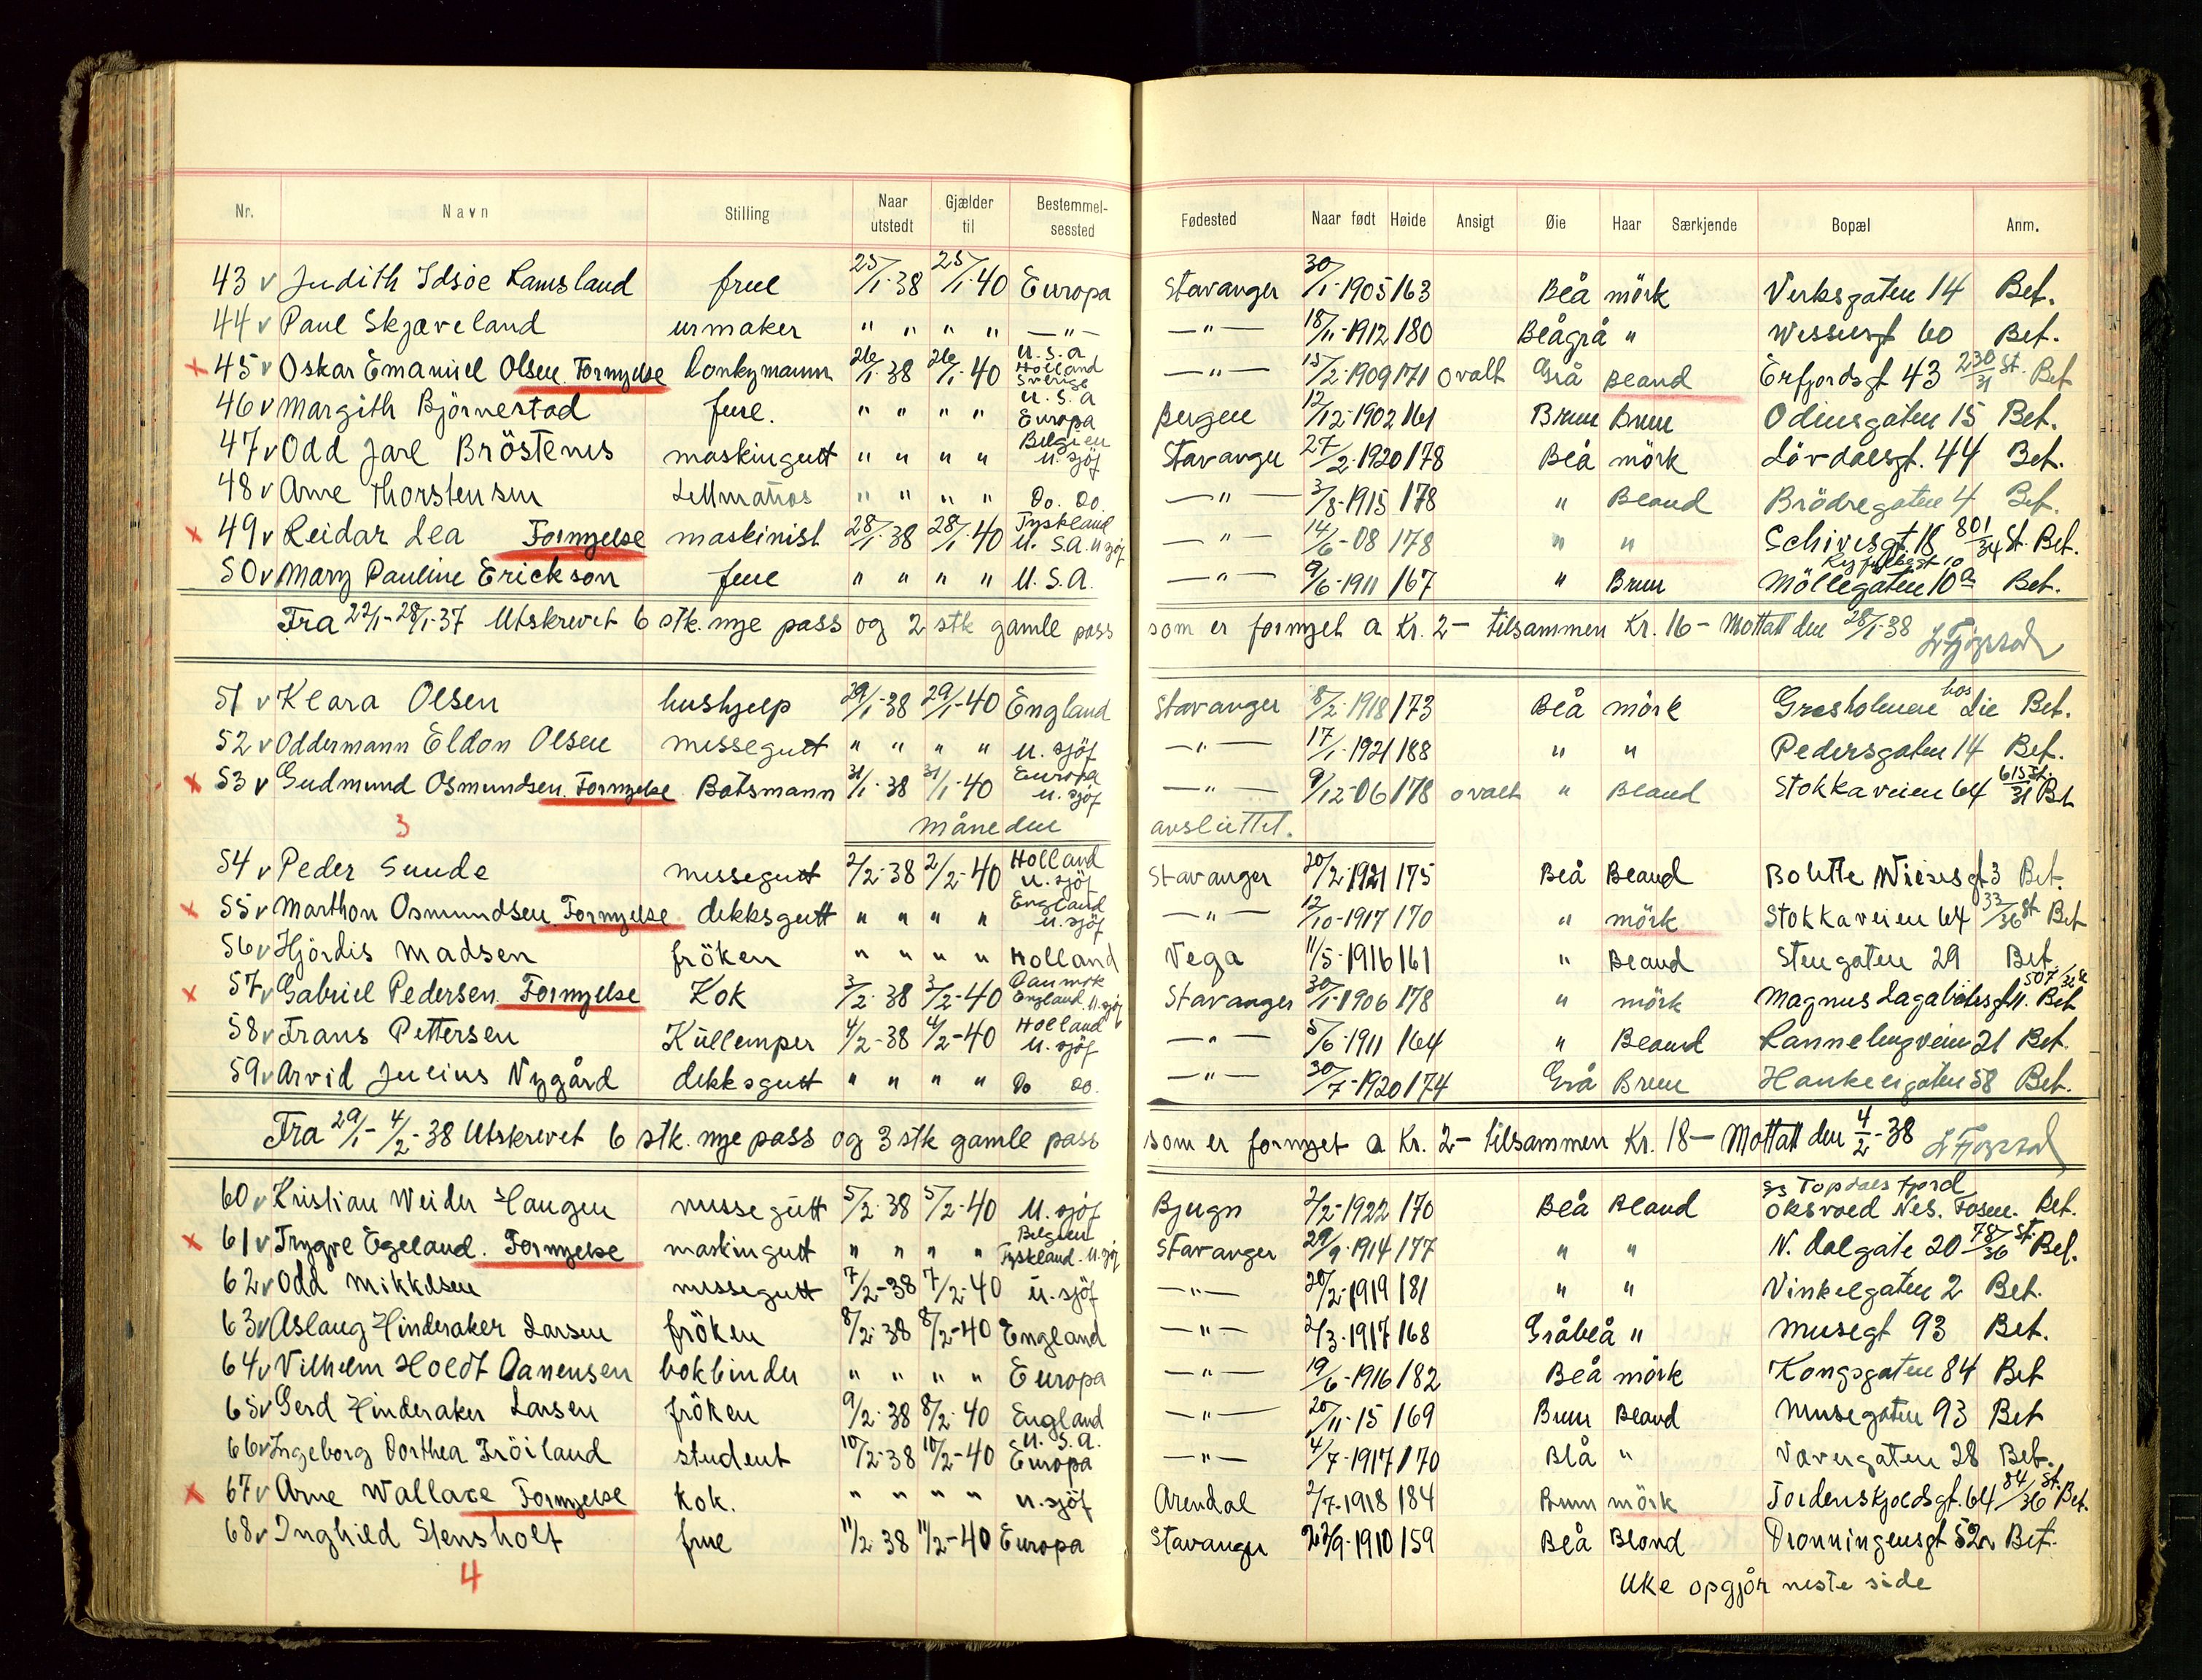 Nr. Navn Stilling Naar utstedt Gjælder til Bestemmel-sessted Fødested Naar født Høide Ansigt Øie Haar Særkjende Bopæl Anm.
43 v Judith Idsøe Ramsland frue 25/1-38 25/1-40 Europa Stavanger 30/1-1905 163 Blå mörk Verksgaten 14 Bet.
44 v Paul Skjæveland urmaker " " " " —"— —"— 18/11-1912 180 Blågrå " Wesselsgt 60 Bet.
x 45 v Oskar Emanuel Olsen. Fornyelse Donkymann 26/1-38 26/1-40 U.S.a Holland Sverige —"— 15/2-1909 171 ovalt Grå Bland Erfjordsgt 43 230/31 St. Bet
46 v Margith Björnestad frue. " " " " U.S.a Europa Bergen 12/12-1902 161 Brun Brun Odinsgaten 15 Bet.
47 v Odd Jarl Bröstenes maskingutt " " " " Belgien u. sjöf Stavanger 27/2-1920 178 Blå mörk Lövdalsgt. 44 Bet.
48 v Arne Thorstensen Lettmatros " " " " Do. Do. —"— 3/8-1915 178 " Bland Brödregaten 4 Bet.
x 49 v Reidar Lea Fornyelse maskinist 28/1-38 28/1-40 Tyskland U.S.A. u sjöf —"— 14/6-08 178 " " Schivesgt. 18 801/34 St. Bet.
50 v Mary Pauline Erickson frue " " " " U.S.A. —"— 9/6-1911 167 " Brun Möllegaten 10a Bet.
Fra 22/1-28/1-37 Utskrevet 6 stk. nye pass og 2 stk gamle pass som er fornyet a Kr. 2- tilsammen Kr. 16- Mottatt den 28/1-38
51 v Klara Olsen hushjelp 29/1-38 29/1-40 England Stavanger 8/2-1918 173 Blå mörk Gresholmen hos Lie Bet.
52 v Oddermann Eldon Olsen messegutt " " " " u. sjöf —"— 17/1-1921 188 " " Pedersgaten 14 Bet.
x 53 v Gudmund Osmundsen. Fornyelse Båtsmann 31/1-38 31/1-40 Europa u. sjöf —"— 9/12-06 178 ovalt " Bland Stokkaveien 64 615/31 St. Bet
3 måneden avsluttet.
54 v Peder Sunde messegutt 2/2-38 2/2-40 Holland u. sjöf Stavanger 20/2-1921 175 Blå Bland Bolette Wiesesgt 3 Bet.
x 55 v Marthon Osmundsen Fornyelse dekksgutt " " " " England u. sjöf —"— 12/10-1917 170 " mörk Stokkaveien 64 33/36 St Bet
56 v Hjördis Madsen fröken " " " " Holland Vega 11/5-1916 161 " Bland Stengaten 29 Bet.
x 57 v Gabriel Pedersen. Fornyelse Kok 3/2-38 3/2-40 Danmark England u. sjöf Stavanger 30/1-1906 178 " mörk Magnus Lagabötesgt 11. Bet
58 v Frans Pettersen Kullemper 4/2-38 4/2-40 Holland u. sjöf —"— 5/6-1911 164 " Bland Rannebergveien 21 Bet.
59 v Arvid Julius Nygård dekksgutt " " " " Do Do. —"— 30/7-1920 174 Grå Brun Haukeligaten 58 Bet.
Fra 29/1-4/2-38 Utskrevet 6 stk. nye pass og 3 stk gamle pass som er fornyet a Kr. 2- tilsammen Kr. 18- Mottatt den 4/2-38
60 v Kristian Weider Haugen messegutt 5/2-38 5/2-40 U. sjöf Bjugn 2/2-1922 170 Blå Bland s/s Topdalsfjord Oksvoll Nes. Fosen. Bet.
x 61 v Trygve Egeland. Fornyelse maskingutt " " " " Belgien Tyskland u. sjöf Stavanger 29/9-1914 177 " " N. Dalgate 20 78/36 St. Bet.
62 v Odd Mikkelsen messegutt 7/2-38 7/2-40 u. sjöf —"— 20/2-1919 181 " " Vinkelgaten 2 Bet.
63 v Aslaug Hinderaker Larsen fröken 8/2-38 8/2-40 England —"— 2/3-1917 168 Gråblå " Musegt 93 Bet.
64 v Vilhelm Holdt Danensen bokbinder " " " " Europa —"— 19/6-1916 182 Blå mörk Kongsgaten 84 Bet
65 v Gerd Hinderaker Larsen fröken 9/2-38 8/2-40 England —"— 20/11-15 169 Brun Bland Musegaten 93 Bet
66 v Ingeborg Dorthea Fröiland student 10/2-38 10/2-40 U.S.a. Europa —"— 4/7-1917 170 Blå " Vavergaten 28 Bet.
x 67 v Arne Wallace Fornyelse Kok. " " " " u. sjöf Arendal 2/7-1918 184 Brun mörk Tordenskjoldsgt. 64 84/36 St. Bet.
68 v Inghild Stensholt frue 11/2-38 11/2-40 Europa Stavanger 27/9-1910 159 Blå Blond Dronningensgt 52 Bet.
4 Uke opgjör neste side